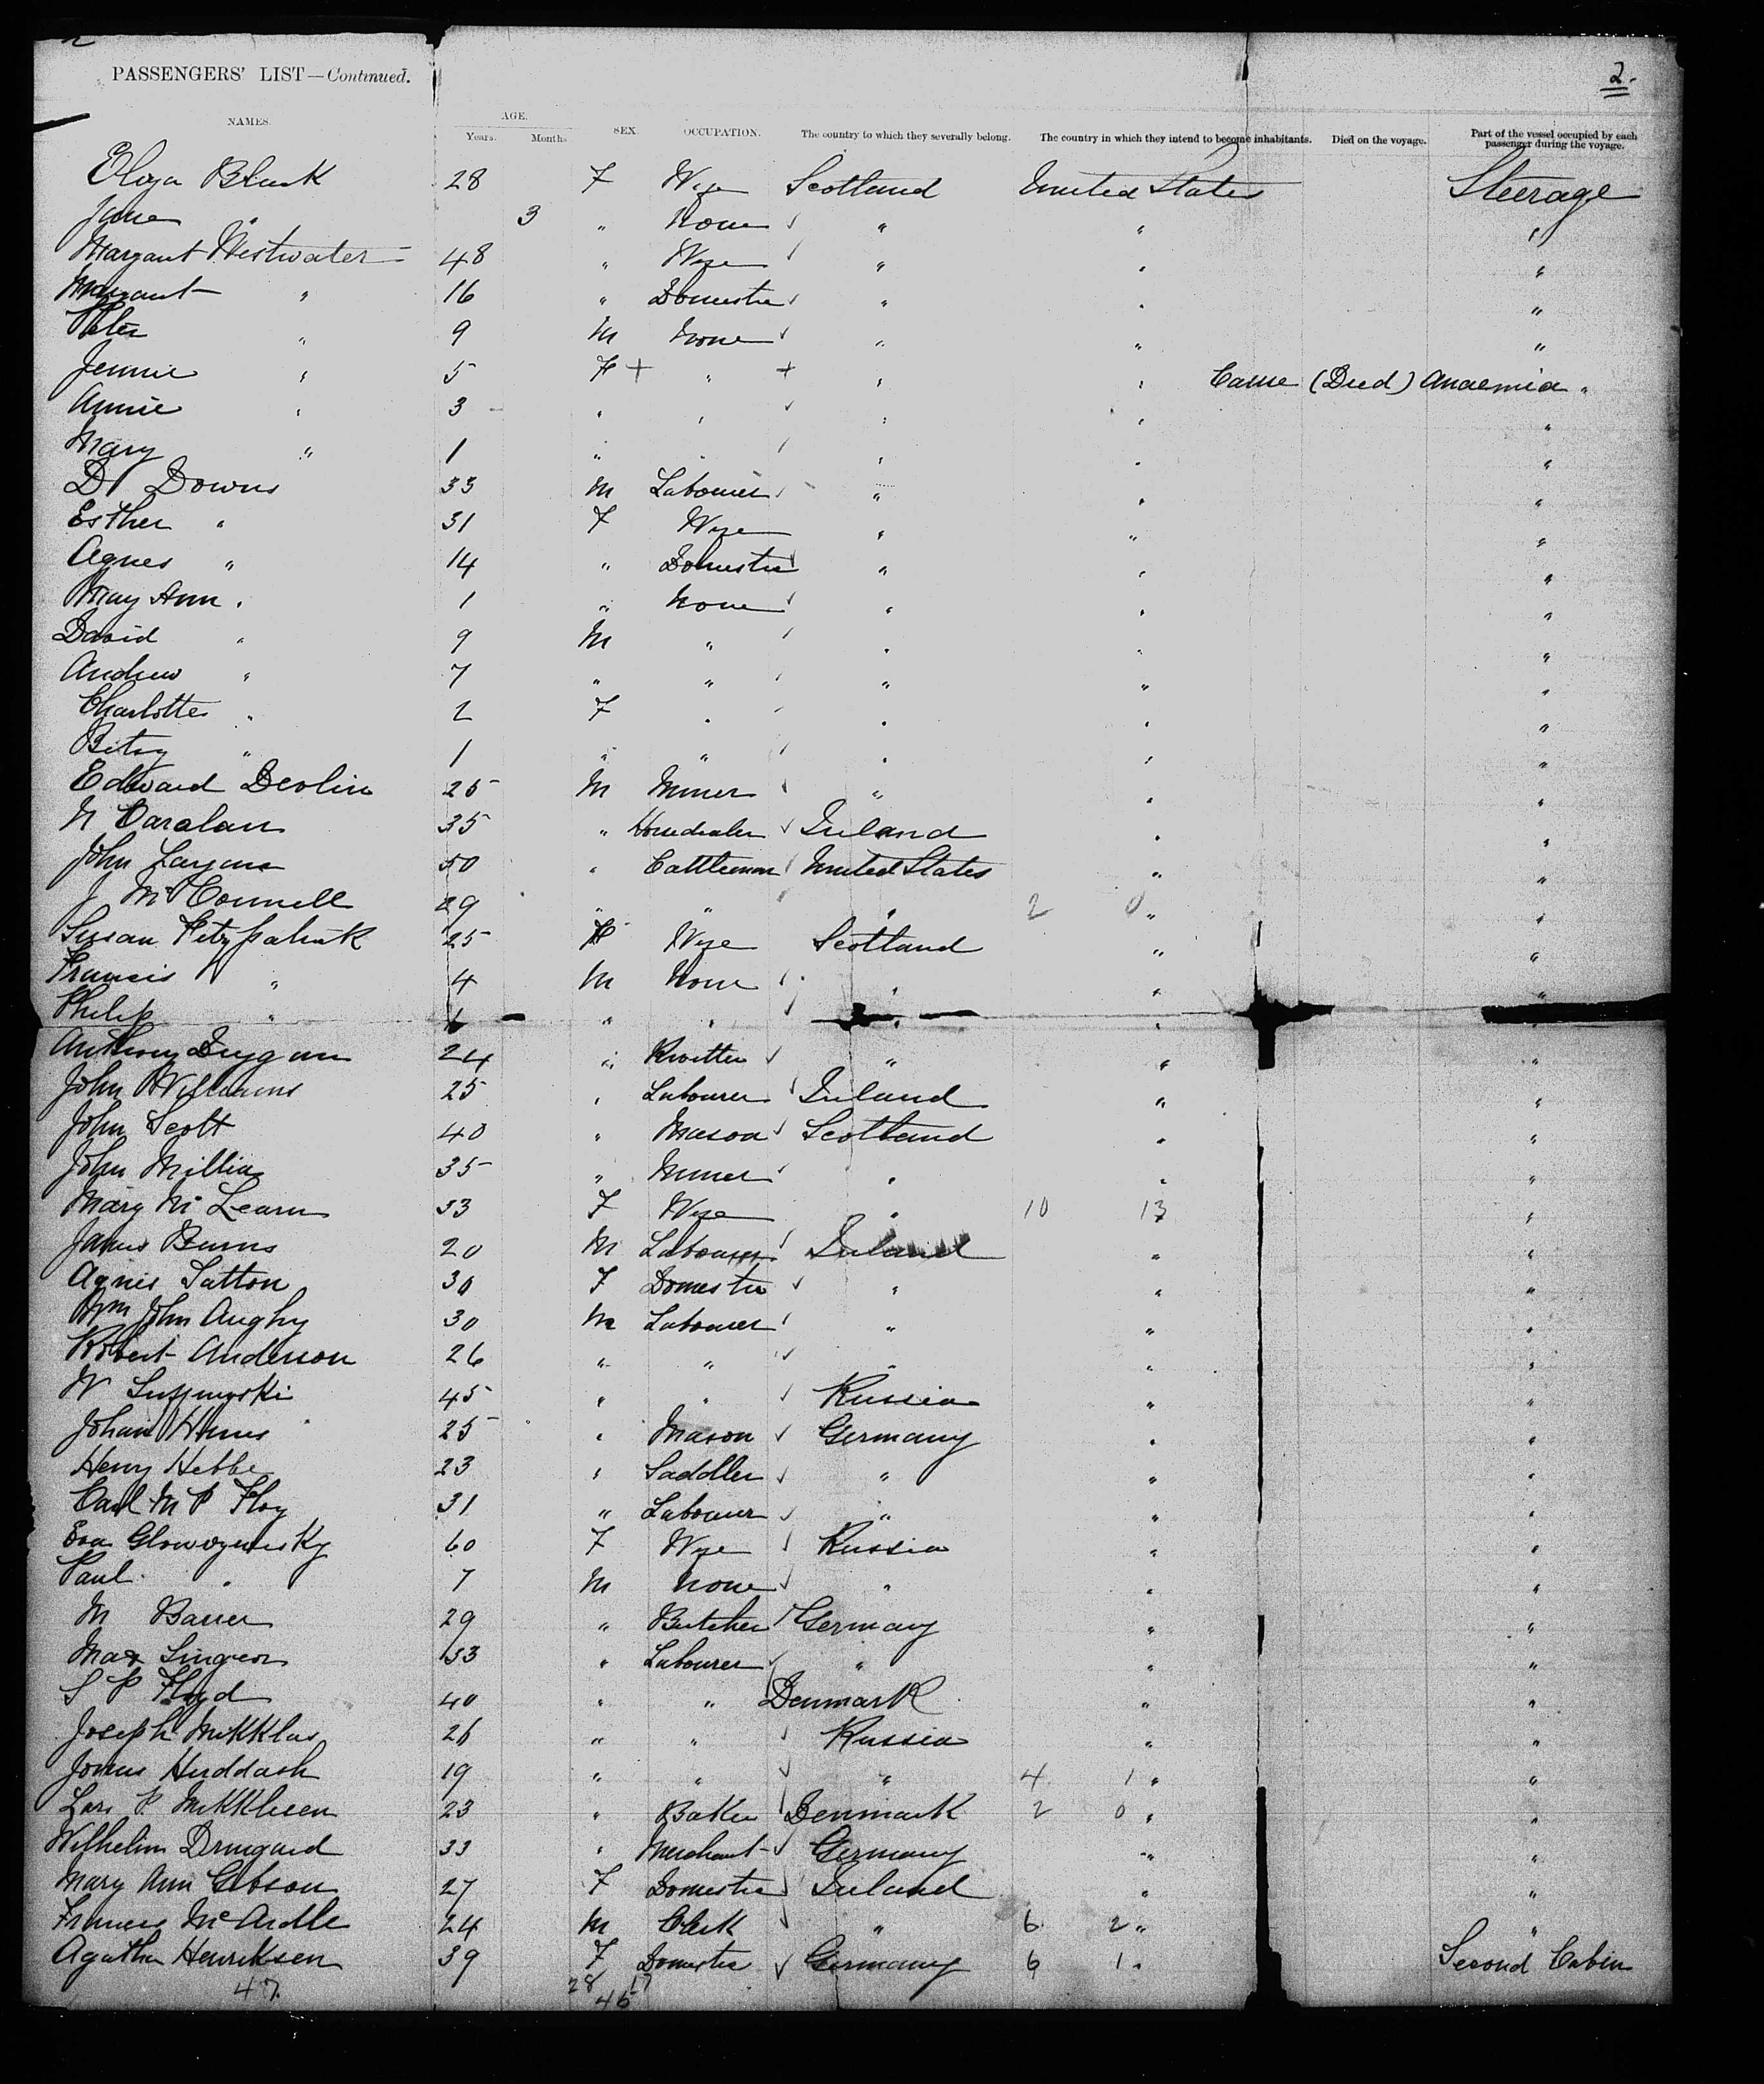 2.
PASSENGERS' LIST—Continued.
NAMES. AGE. Years. Months. SEX. OCCUPATION. The country to which they severally belong. The country in which they intend to become inhabitants. Died on the voyage. Part of the vessel occupied by each passenger during the voyage.
Eliza Black 28 F Wife Scotland United States Steerage
Jane " 3 " None ✓ " " "
Margaret Westwater 48 " Wife ✓ " " "
Margaret " 16 " Domestic ✓ " " "
Peter " 9 M None ✓ " " "
Jennie " 5 F + " + " " Cause (Died) Anaemia "
Annie " 3 " " ✓ " " "
Mary " 1 " " ✓ " " "
D Downs 33 M Labourer ✓ " " "
Esther " 31 F Wife " " "
Agnes " 14 " Domestic ✓ " " "
May Ann " 1 " None ✓ " " "
David " 9 M " ✓ " " "
Andrew " 7 " " ✓ " " "
Charlotte " 2 F " ✓ " " "
Betsy " 1 " " ✓ " " "
Edward Devlin 25 M Miner ✓ " " "
N Caralan 35 " Horsedealer ✓ Ireland " "
John 50 " Cattleman ✓ United States " "
J McConnell 29 " " ✓ " 2 0 " "
Susan Fitzpatrick 25 F Wife Scotland " "
Francis " 4 M None ✓ " " "
Philip " " " ✓ " " "
Anthony Dugan 24 " Rivetter ✓ " " "
John Williams 25 " Labourer ✓ Ireland " "
John Scott 40 " Mason ✓ Scotland " "
John Millia 35 " Miner ✓ " " "
Mary McLearn 53 F Wife " 10 13 "
James Burns 20 M Labourer ✓ Ireland " "
Agnes Tatton 30 F Domestic ✓ " " "
Wm John Aughy 30 M Labourer ✓ " " "
Robert Anderson 26 " " ✓ " " "
W 45 " " ✓ Russia " "
Johann 25 " Mason ✓ Germany " "
Henry Hebbe 23 " Saddler ✓ " " "
Carl M P Floy 31 " Labourer ✓ " " "
Eva 60 F Wife ✓ Russia " "
Paul " 7 M None ✓ " " "
M Barrer 29 " Butcher ✓ Germany " "
Max Singeon 33 " Labourer ✓ " " "
S P Floyd 40 " " Denmark " "
Joseph Mikklas 26 " " ✓ Russia " "
Jonus Huddash 19 " " ✓ " 4 1 " "
Lars P Mikklesen 23 " Baker ✓ Denmark 2 0 " "
Wilhelm Drungard 33 " Merchant ✓ Germany " "
Mary Ann Gibson 27 F Domestic ✓ Ireland " "
Francis McArdle 24 M Clerk ✓ " 6 2 " "
Agatha Henriksen 39 F Domestic ✓ Germany 6 1 " Second Cabin
47. 28 17
46